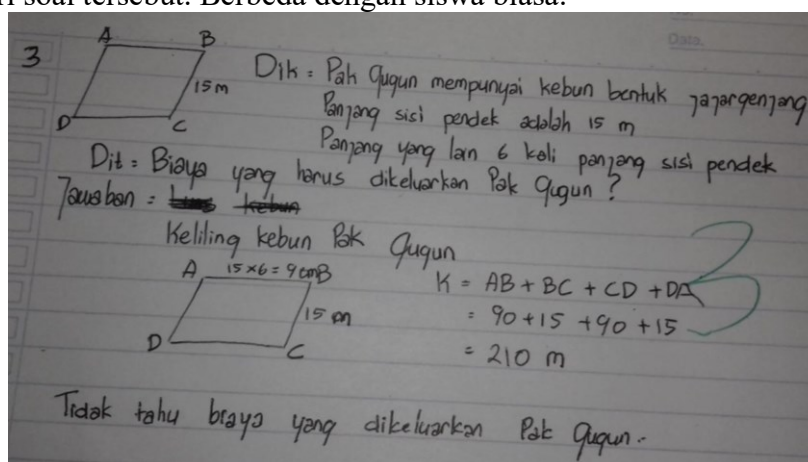 ri soal tersebut. Berbeda dengan siswa biasa.
Data.
3
A B
15 m
D C
Dik = Pak Gugun mempunyai kebun bentuk jajargenjang
Panjang sisi pendek adalah 15 m
Panjang yang lain 6 kali panjang sisi pendek
Dit = Biaya yang harus dikeluarkan Pak Gugun ?
Jawaban = kebun
Keliling kebun Pak Gugun
A 15 x 6 = 90 m B
15 m
D C
K = AB + BC + CD + DA
= 90 + 15 + 90 + 15
= 210 m
3
Tidak tahu biaya yang dikeluarkan Pak Gugun.